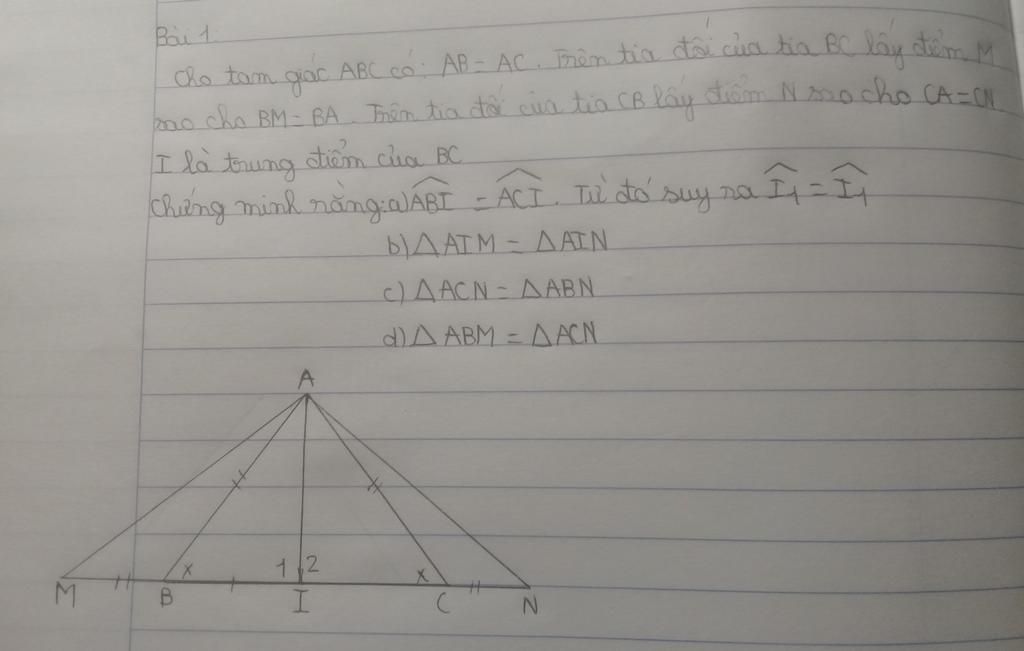 Bài 1.
Cho tam giác ABC có: AB = AC. Trên tia đối của tia BC lấy điểm M
sao cho BM = BA. Trên tia đối của tia CB lấy điểm N sao cho CA = CN
I là trung điểm của BC
Chứng minh rằng: a) \widehat{ABI} = \widehat{ACI}. Từ đó suy ra \widehat{I_1} = \widehat{I_1}
b) △AIM = △AIN
c) △ACN = △ABN
d) △ABM = △ACN
A
x 1 2 x
M B I C N